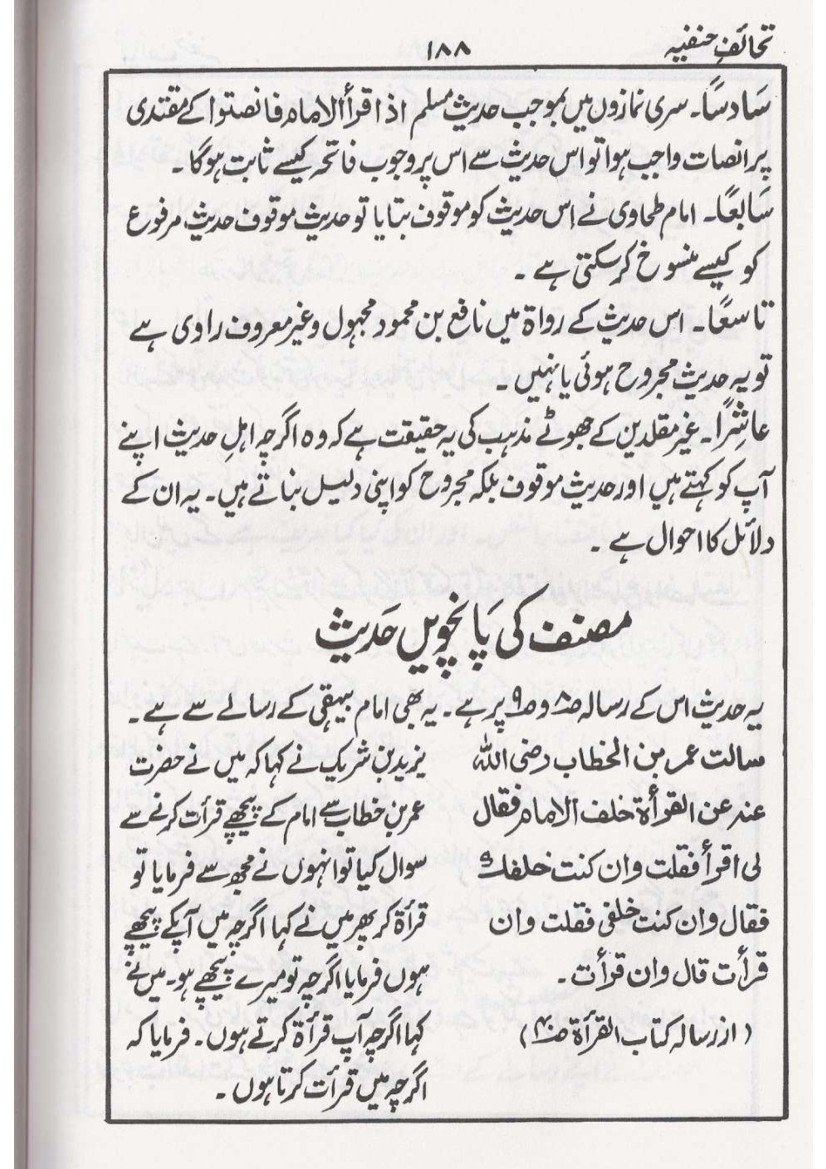 تحائف حنفیہ
۱۸۸
سَادسًا۔ سری نمازوں میں بموجب حدیث مسلم اذا قرأ الامام فانصتوا کے مقتدی
پر انصات واجب ہوا تو اس حدیث سے اس پر وجوب فاتحہ کیسے ثابت ہوگا۔
سَابعًا۔ امام طحاوی نے اس حدیث کو موقوف بتایا تو حدیث موقوف حدیث مرفوع
کو کیسے منسوخ کر سکتی ہے۔
تاسعًا۔ اس حدیث کے رواۃ میں نافع بن محمود مجہول وغیر معروف راوی ہے
تو یہ حدیث مجروح ہوئی یا نہیں۔
عاشِرًا۔ غیر مقلدین کے جھوٹے مذہب کی یہ حقیقت ہے کہ وہ اگرچہ اہل حدیث اپنے
آپ کو کہتے ہیں اور حدیث موقوف بلکہ مجروح کو اپنی دلیل بناتے ہیں۔ یہ ان کے
دلائل کا احوال ہے۔
مصنف کی پانچویں حدیث
یہ حدیث اس کے رسالہ ص۸ وص۹ پر ہے۔ یہ بھی امام بیہقی کے رسالے سے ہے۔
سالت عمر بن الخطاب رضی اللہ
عنہ عن القرأۃ خلف الامام فقال
لی اقرأ فقلت وان کنت خلفک
فقال وان کنت خلفی فقلت وان
قرأت قال وان قرأت۔
(از رسالہ کتاب القرأۃ ص۴۰)
یزید بن شریک نے کہا کہ میں نے حضرت
عمر بن خطاب سے امام کے پیچھے قرأت کرنے سے
سوال کیا تو انہوں نے مجھ سے فرمایا تو
قرأۃ کر پھر میں نے کہا اگرچہ میں آپکے پیچھے
ہوں فرمایا اگرچہ تو میرے پیچھے ہو۔ میں نے
کہا اگرچہ آپ قرأۃ کرتے ہوں۔ فرمایا کہ
اگرچہ میں قرأت کرتا ہوں۔